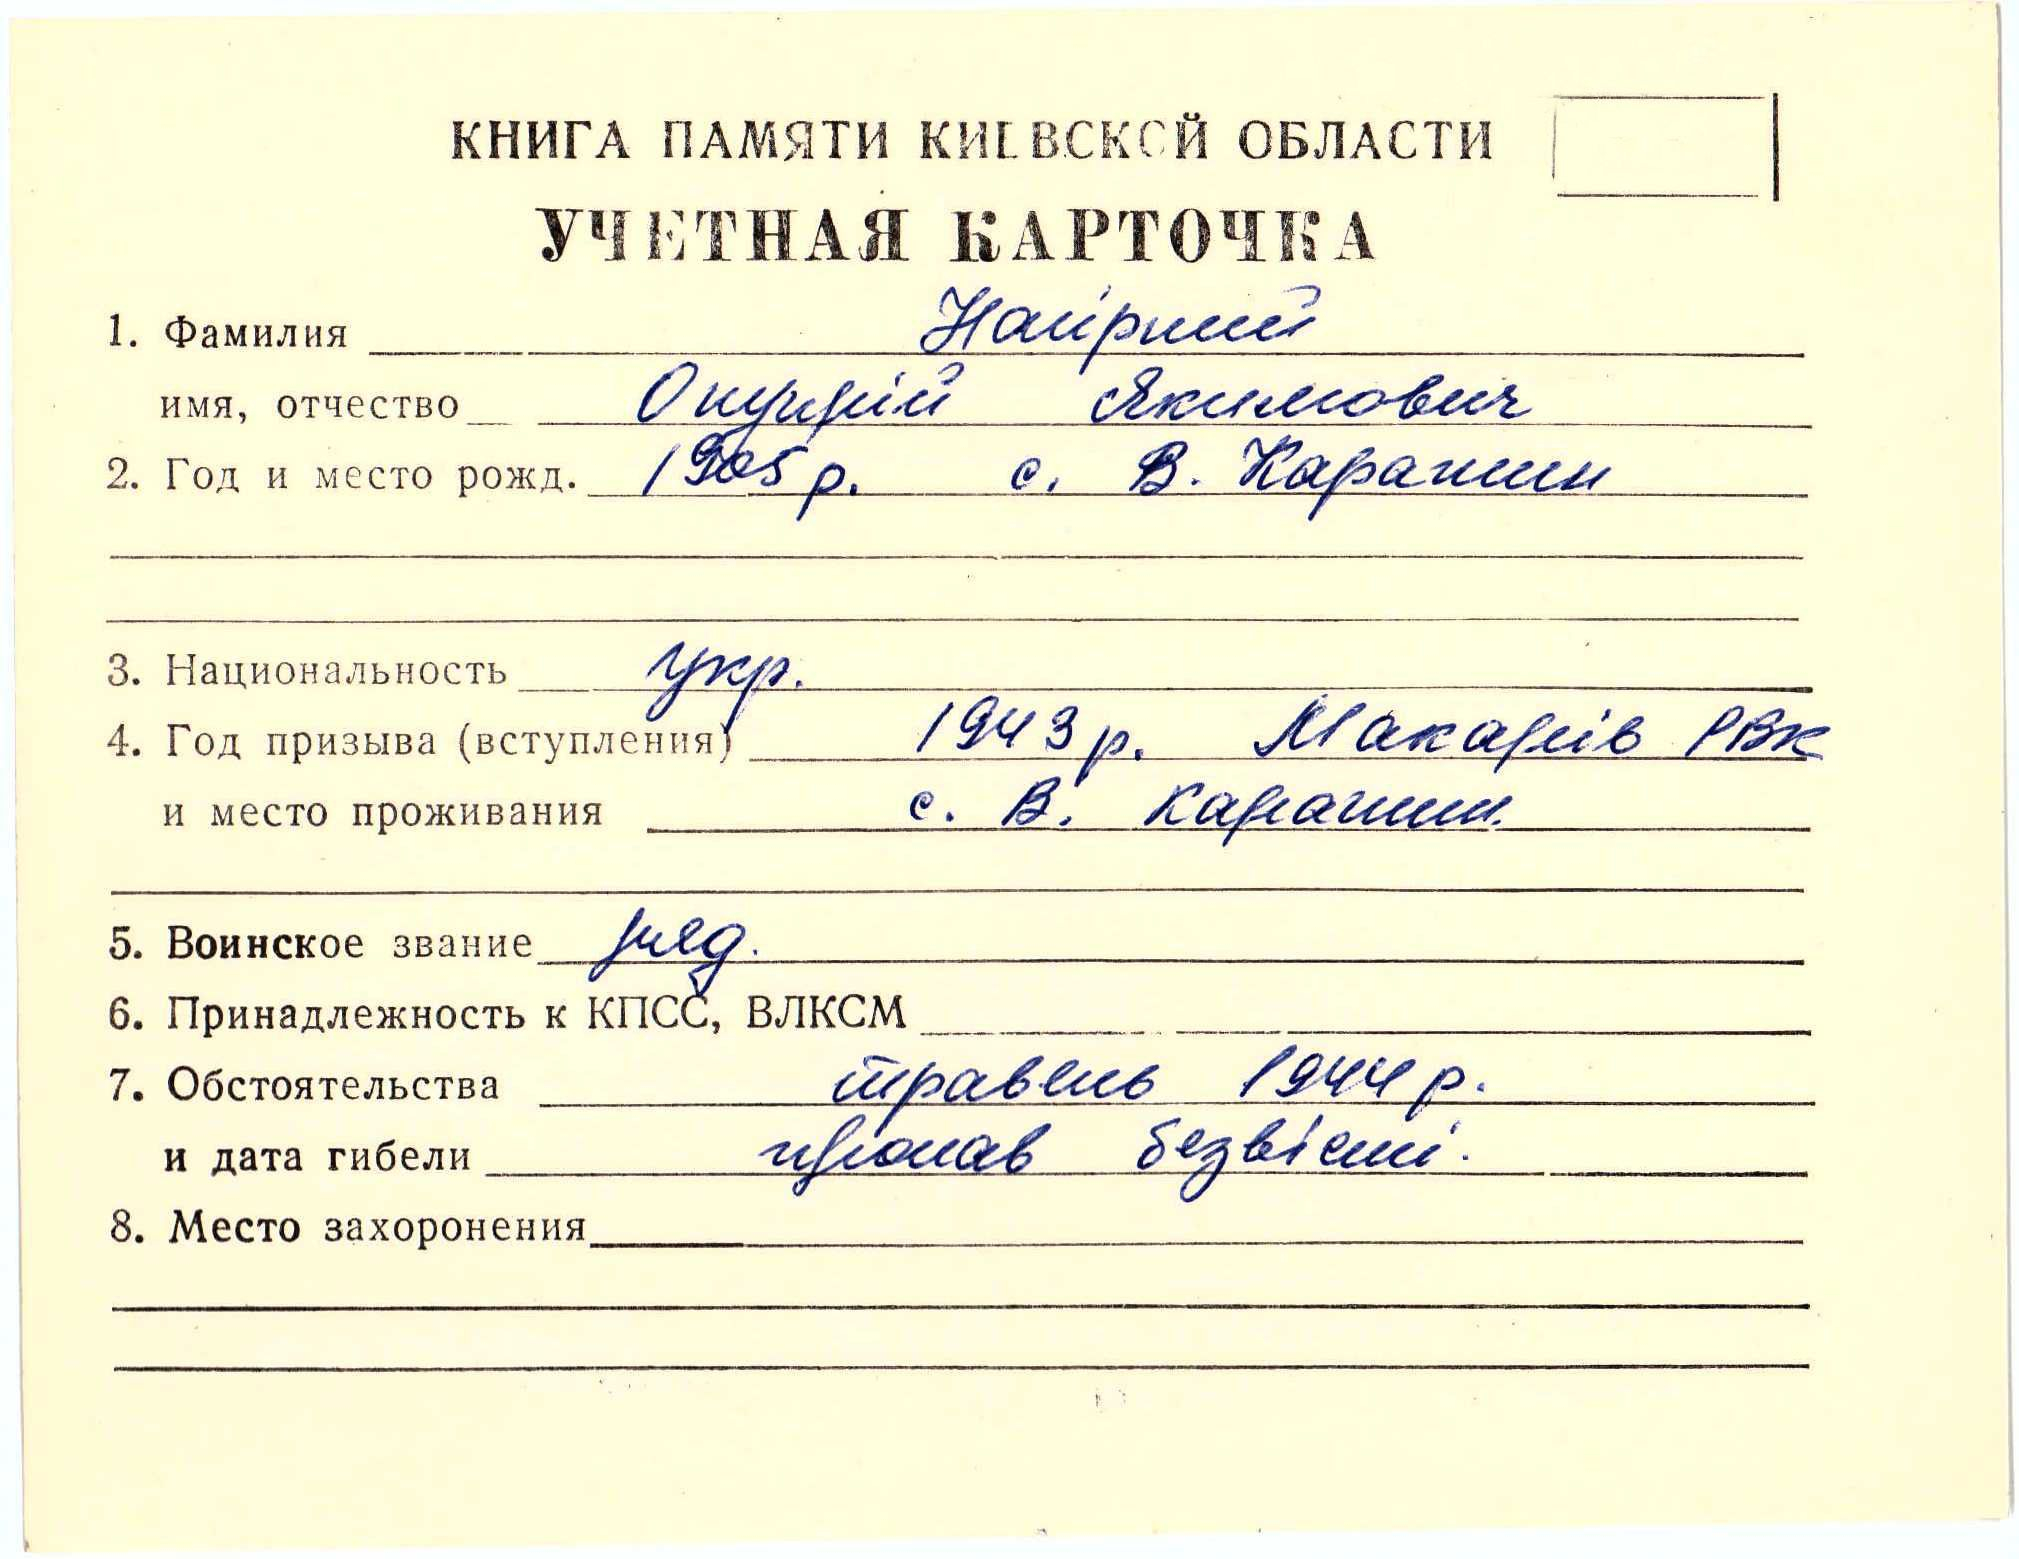 КНИГА ПАМЯТИ КИЕВСКОЙ ОБЛАСТИ
УЧЕТНАЯ КАРТОЧКА
1. Фамилия
имя, отчество Якимович
2. Год и место рожд. 1905 р. с. В. Карашин
3. Национальность укр.
4. Год призыва (вступления) 1943 р. Макарів РВК
и место проживания с. В. Карашин.
5. Воинское звание ряд.
6. Принадлежность к КПСС, ВЛКСМ
7. Обстоятельства травень 1944 р.
и дата гибели пропав безвісті.
8. Место захоронения